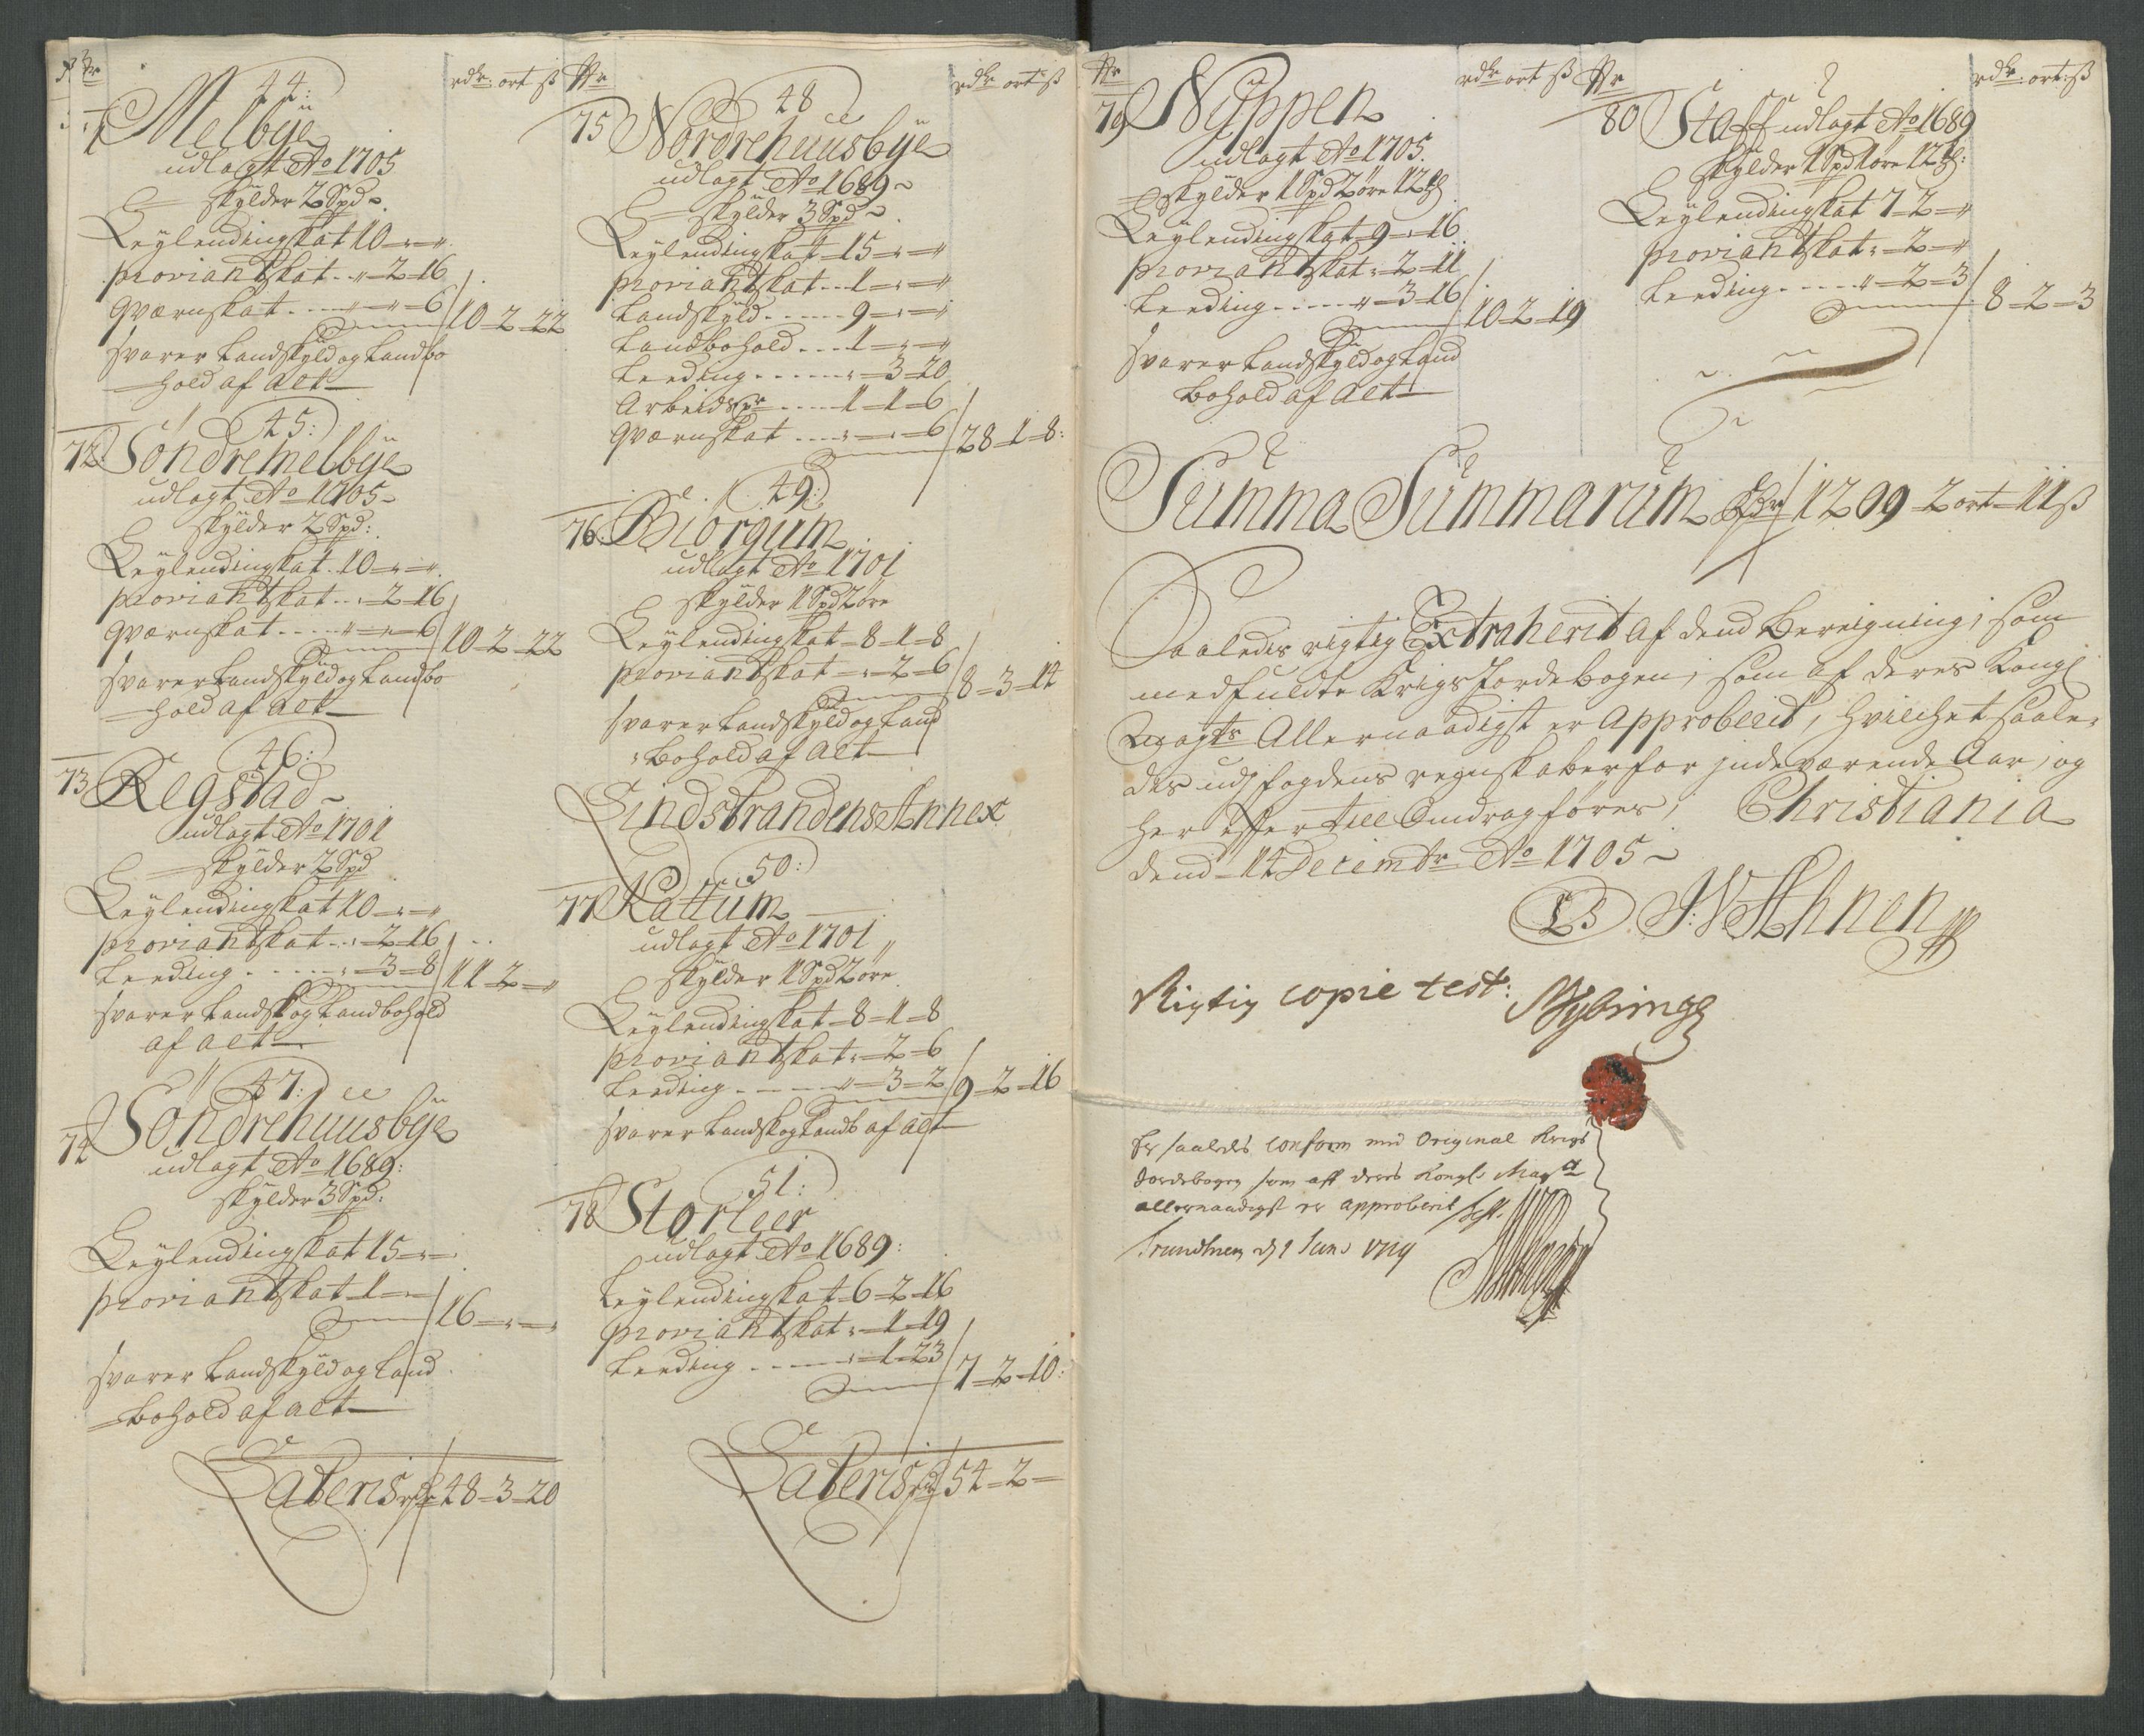 Nr
rdr ort ß
44:
71 Melbÿe
udlagt Ao 1705
skÿlder 2 Spd
Leÿlendingskat 10 = " = "
proviantskat . . " = 2 = 16
qværnskat . . . . " = " = 6 / 10 = 2 = 22
svarer Landskÿld og Landbo
hold af alt
45:
72 Söndremelbÿe
udlagt Ao 1705
skÿlder 2 Spd:
Leÿlendingskat 10 = " = "
proviantskat . . " = 2 = 16
qværnskat . . . . " = " = 6 / 10 = 2 = 22
svarer Landskÿld og Landbo
hold af alt
46:
73 Regstad
udlagt Ao 1701
skÿlder 2 Spd
Leÿlendingskat 10 = " = "
proviantskat . . " = 2 = 16
Leeding . . . . . " = 3 = 8 / 11 = 2 = "
svarer Landsk og Landbohold
af alt
47:
74 Söndrehuusbÿe
udlagt Ao 1689:
skÿlder 3 Spd:
Leÿlendingskat 15 = " = "
proviantskat 1 = " = " / 16 = " = "
svarer Landskÿld og Land
bohold af alt
Lateris rdr 48 = 3 = 20
Nr
rdr ort ß
48
75 Nordrehuusbÿe
udlagt Ao 1689
skÿlder 3 Spd
Leÿlendingskat 15 = " = "
proviantskat . . 1 = " = "
Landskÿld . . . . . 9 = " = "
Landbohold . . . 1 = " = "
Leeding . . . . . . " = 3 = 20
Arbeidspr . . . . . 1 = 1 = 6
qværnskat . . . . " = " = 6 / 28 = 1 = 8:
49:
76 Biörgum
udlagt Ao 1701
skÿlder 1 Spd 2 öre
Leÿlendingskat = 8 = 1 = 8
proviantskat = " = 2 = 6 / 8 = 3 = 14
svarer Landskÿld og Land
bohold af alt
Lindstrandens Annex
50:
77 Rattum
udlagt Ao 1701
skÿlder 1 Spd 2 öre
Leÿlendingskat = 8 = 1 = 8
proviantskat " = 2 = 6
Leeding . . . . " = 3 = 2 / 9 = 2 = 16
svarer Landsk og Landb af alt
51:
78 Storleer
udlagt Ao 1689:
Leÿlendingskat = 6 = 2 = 16
proviantskat " = 1 = 19
Leeding . . . . . " = 1 = 23 / 7 = 2 = 10:
Lateris rd 54 = 2 =
Nr
rdr ort ß
79 Nÿppen
udlagt Ao 1705.
skÿlder 1 Spd 2 öre 12 &
Leÿlendingskat = 9 = " = 16
proviantskat " = 2 = 11
Leeding . . . . . " = 3 = 16 / 10 = 2 = 19
svarer Landskÿld og Land
bohold af alt
Nr
rdr ort ß
80 Staff udlagt Ao 1689
skÿlder 1 Spd 1 öre 12 &:
Leÿlendingskat 7 = 2 = "
proviantskat " = 2 = "
Leeding . . . . . " = 2 = 3 / 8 = 2 = 3
Summa Summarum rdr / 1209 = 2 ort = 11 ß
Saaledis rigtig Extraherit af dend Bereigning, som
medfuldte Krigs Jordebogen, som af deres Kongl
Mayts Allernaadigst er Approberit, hvilchet saale-
des udj fogdens regnskaber for jndeværende Aar, og
her effter till Omdrag føres, Christiania
dend 14 Decembr Ao 1705
LS J: W Ahnen
Rigtig copie test:
Er saaledes conform med Original Krigs
Jordebogen som aff deres Kongl: Mayt
allernaadigst er approberit Test.
Trundhiem d 1 Juni 1719